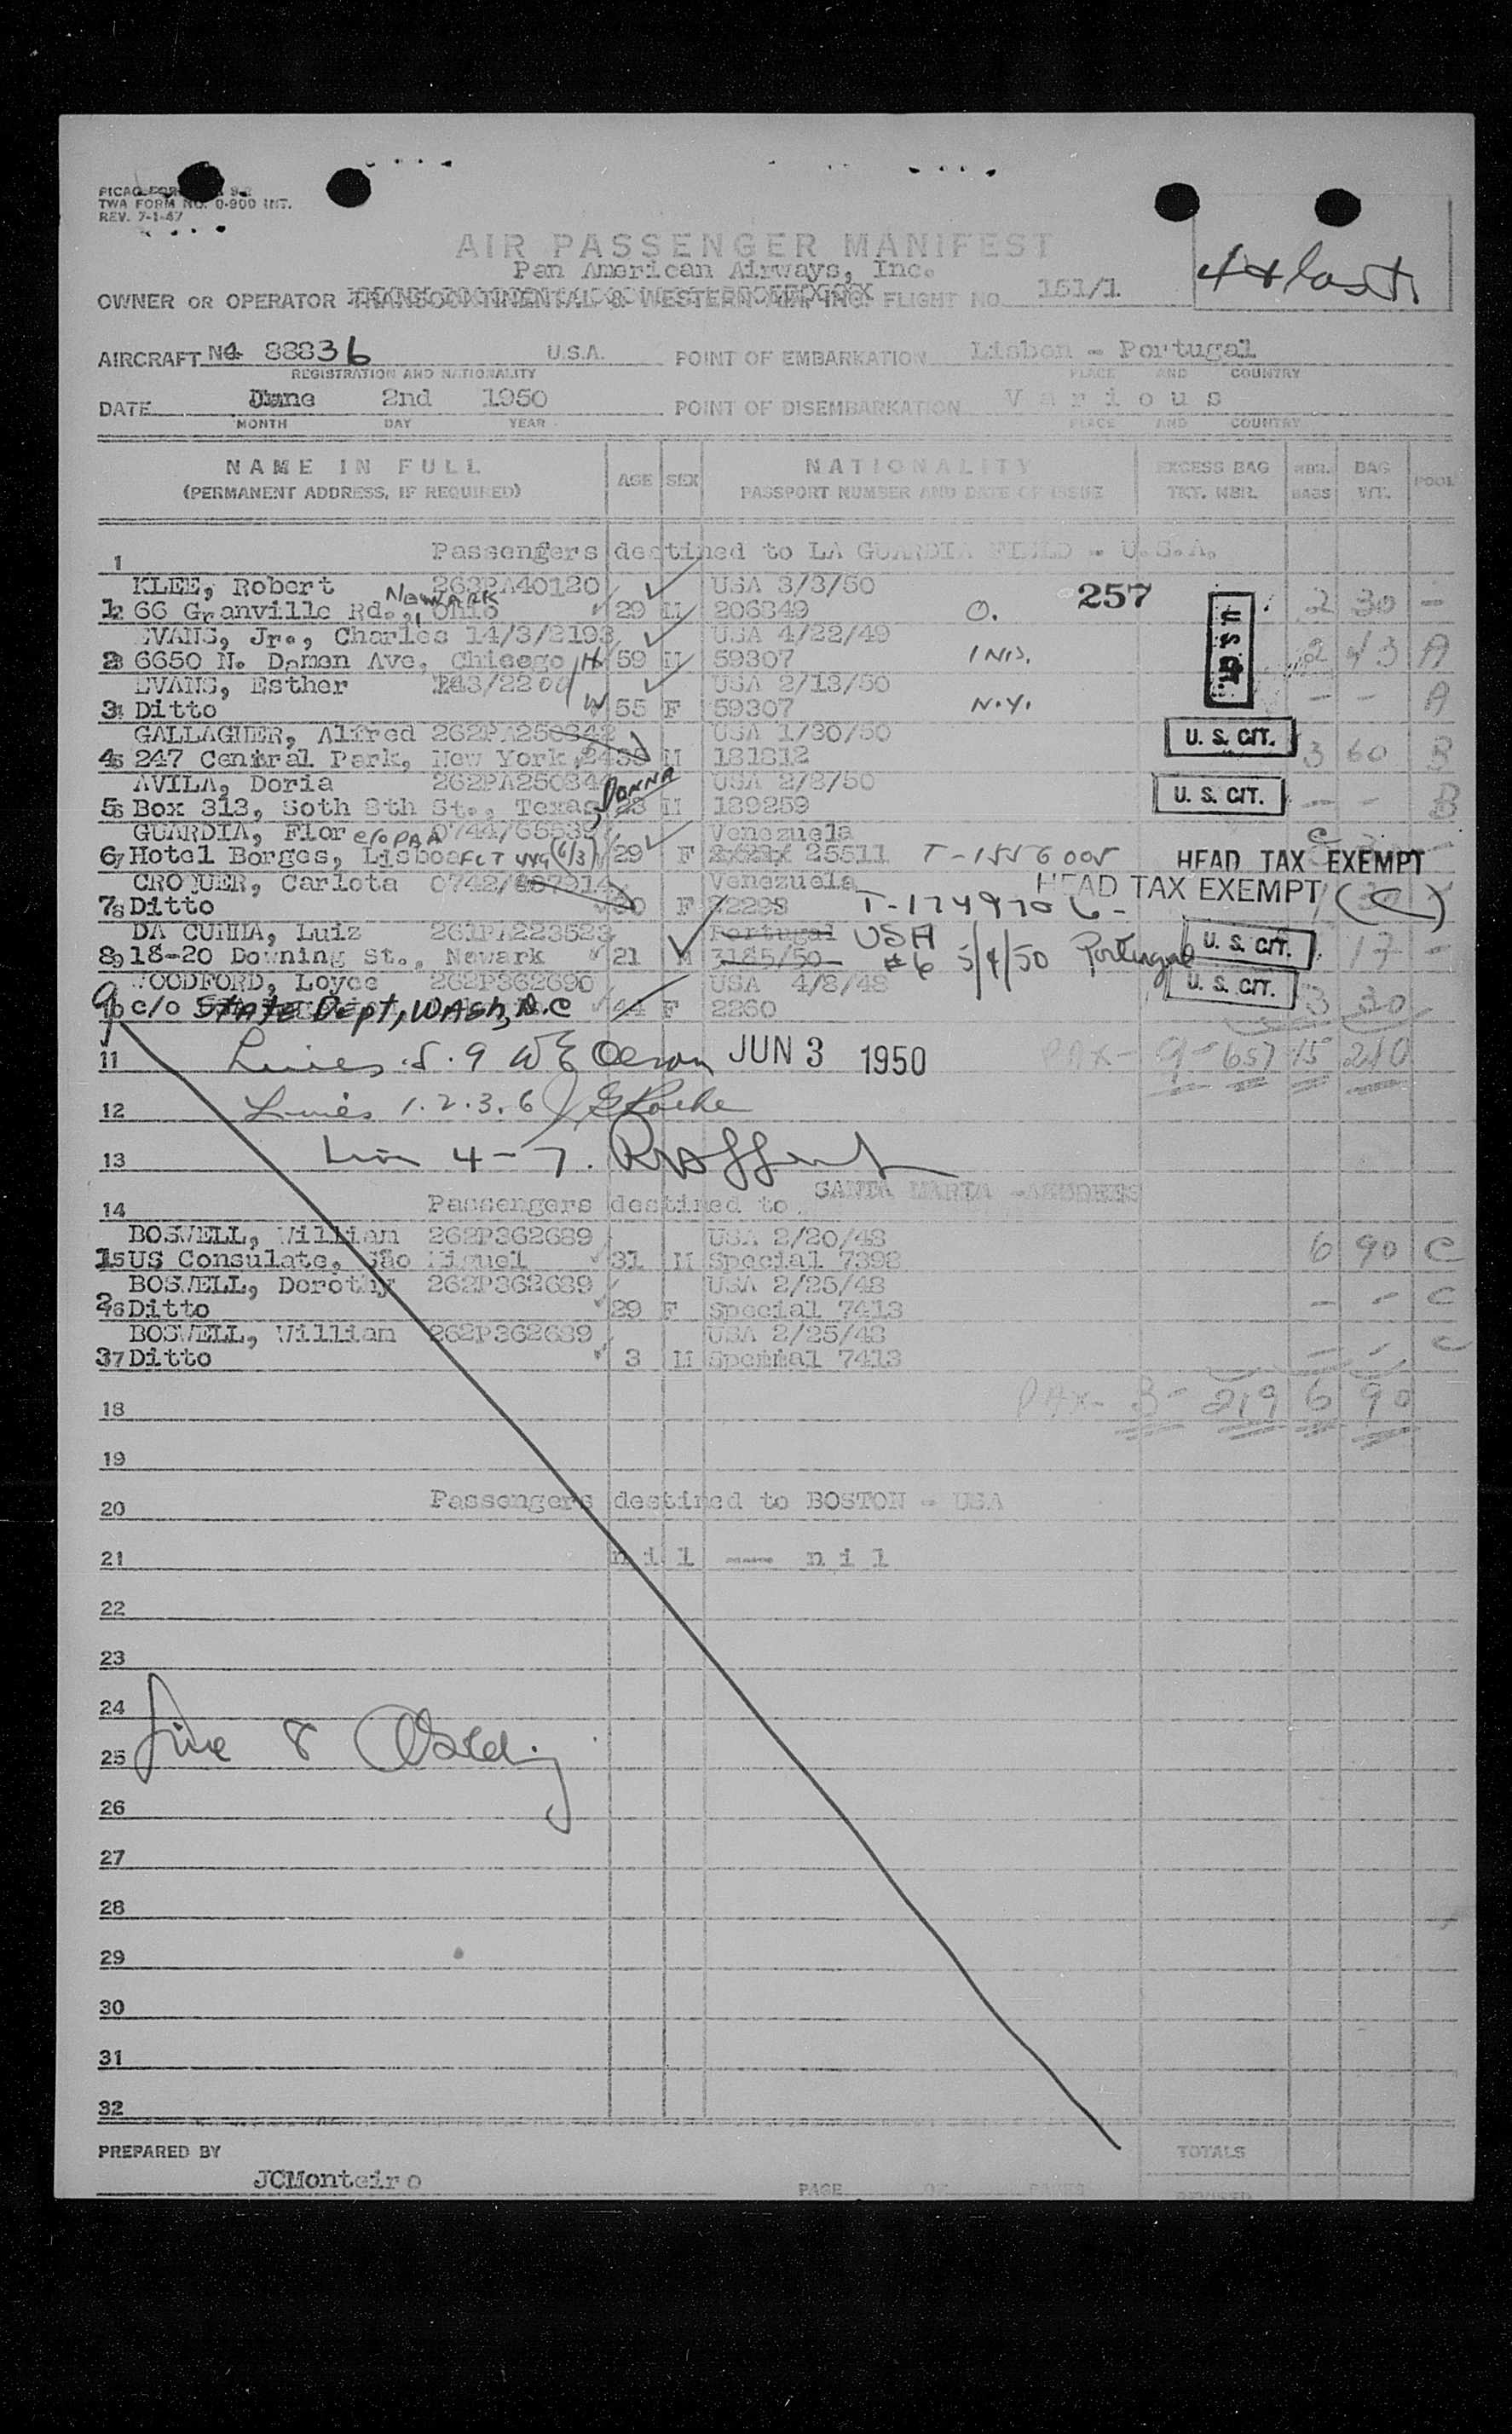 TWA FORM NO. 0-900 INT.
REV. 7-1-47
AIR PASSENGER MANIFEST
Pan American Airways, Inc.
44 last
OWNER OR OPERATOR TRANSCONTINENTAL & WESTERN AIR INC. FLIGHT NO. 151/1
AIRCRAFT 88836 U.S.A. POINT OF EMBARKATION Lisbon - Portugal
REGISTRATION AND NATIONALITY PLACE AND COUNTRY
DATE June 2nd 1950 POINT OF DISEMBARKATION Various
MONTH DAY YEAR PLACE AND COUNTRY
NAME IN FULL AGE SEX NATIONALITY EXCESS BAG NBR. BAG POOL
(PERMANENT ADDRESS, IF REQUIRED) PASSPORT NUMBER AND DATE OF ISSUE TKT. NBR. BAGS WT.
1 Passengers destined to LA GUARDIA FIELD - U.S.A.
KLEE, Robert 262PA40120 USA 3/3/50 257
Newark
1 66 Granville Rd., Ohio 29 M 206849 O. 2 30 -
EVANS, Jr., Charles 14/3/2193 USA 4/22/49
2 6650 N. Damen Ave, Chicago H 59 M 59307 INS. 2 43 A
EVANS, Esther USA 2/13/50
3 Ditto W 55 F 59307 N.Y. - - A
GALLAGHER, Alfred 262PA250342 USA 1/30/50
4 247 Central Park, New York, M 181812 U. S. CIT. 3 60 B
AVILA, Doria 262PA250344 USA 2/2/50
DONNA
5 Box 313, Soth 8th St., Texas, 28 M 189259 U. S. CIT. - - B
GUARDIA, Flor c/o PAA Venezuela
6 Hotel Borges, Lisboa (6/3) 29 F 25511 T-1556005 HEAD TAX EXEMPT
CROQUER, Carlota Venezuela HEAD TAX EXEMPT (C)
7 Ditto F 22298 T-1749706-
DA CUNHA, Luiz 261PA223523 Portugal USA U. S. CIT.
8 18-20 Downing St., Newark 21 M 3185/50 #6 5/4/50 Portugal 17 -
WOODFORD, Loyce 262P362690 USA 4/8/48 U. S. CIT.
9 c/o STATE Dept, WASH, D.C 44 F 2260 3 30
11 Lines 5.9 W E Olson JUN 3 1950 PAX- 9- 657 15 210
12 Lines 1.2.3.6
13 4-7.
14 Passengers destined to SANTA MARIA - AZORES
BOSWELL, William 262P362689 USA 2/20/48
15 US Consulate, São Miguel 31 M Special 7398 6 90 C
BOSWELL, Dorothy 262P362689 USA 2/25/48
2 Ditto 29 F Special 7413 - - C
BOSWELL, William 262P362689 USA 2/25/48
37 Ditto 3 M Special 7413 - - C
18 PAX- 3- 219 6 90
19
20 Passengers destined to BOSTON - USA
21 nil --- nil
22
23
24
Line 8
25
26
27
28
29
30
31
32
PREPARED BY TOTALS
JCMonteiro
PAGE OF PAGES